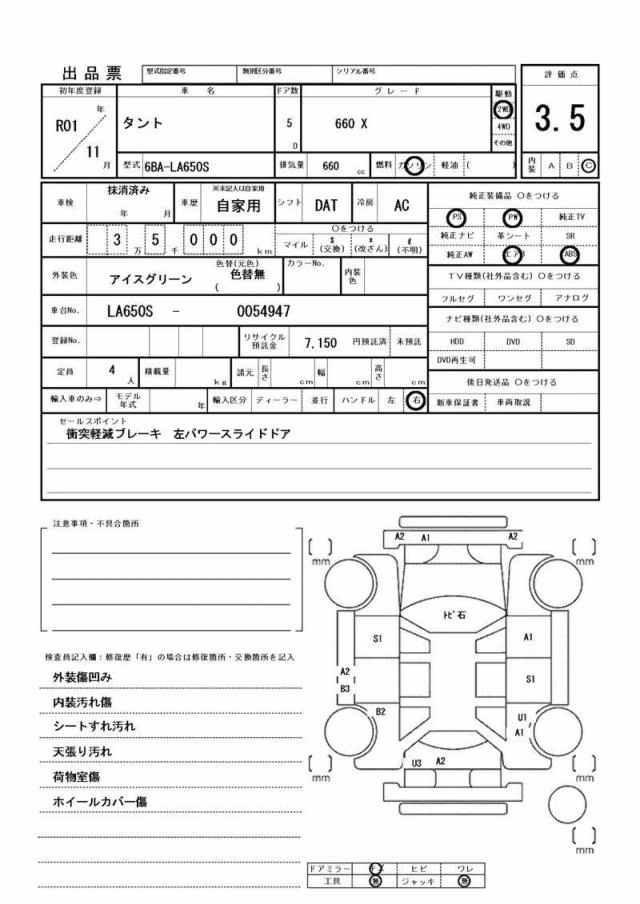 出品票 型式指定番号 類別区分番号 シリアル番号 評価点
初年度登録 車名 ドア数 グレード 駆動
R01 年 タント 5 D 660 X 2WD 3.5
11 月 4WD
その他
型式 6BA-LA650S 排気量 660 cc 燃料 ガソリン 軽油 ( ) 内装 A B C
車検 抹消済み 年 月 車歴 ※未記入は自家用 自家用 シフト DAT 冷房 AC 純正装備品 〇をつける
PS PW 純正TV
走行距離 3 万 5 千 0 0 0 km 〇をつける
マイル $ (交換) x (改ざん) # (不明)
純正ナビ 革シート SR
純正AW エアB ABS
外装色 アイスグリーン 色替(元色) 色替無 ( ) カラーNo. 内装色
TV種類(社外品含む) 〇をつける
フルセグ ワンセグ アナログ
車台No. LA650S - 0054947
ナビ種類(社外品含む) 〇をつける
登録No. リサイクル預託金 7,150 円預託済 未預託
HDD DVD SD
DVD再生可
定員 4 人 積載量 kg 諸元 長さ cm 幅 cm 高さ cm
後日発送品 〇をつける
輸入車のみ⇒ モデル年式 年 輸入区分 ディーラー 並行 ハンドル 左 右 新車保証書 車両取説
セールスポイント
衝突軽減ブレーキ 左パワースライドドア
注意事項・不具合箇所
検査員記入欄:修復歴「有」の場合は修復箇所・交換箇所を記入
外装傷凹み
内装汚れ傷
シートすれ汚れ
天張り汚れ
荷物室傷
ホイールカバー傷
A2 A1 A2
mm mm
トビ石
S1 A1
A2 S1
B3
B2 U1
A1
U3 A2
mm mm
mm
ドアミラー ヒビ ワレ
工具 無 ジャッキ 無